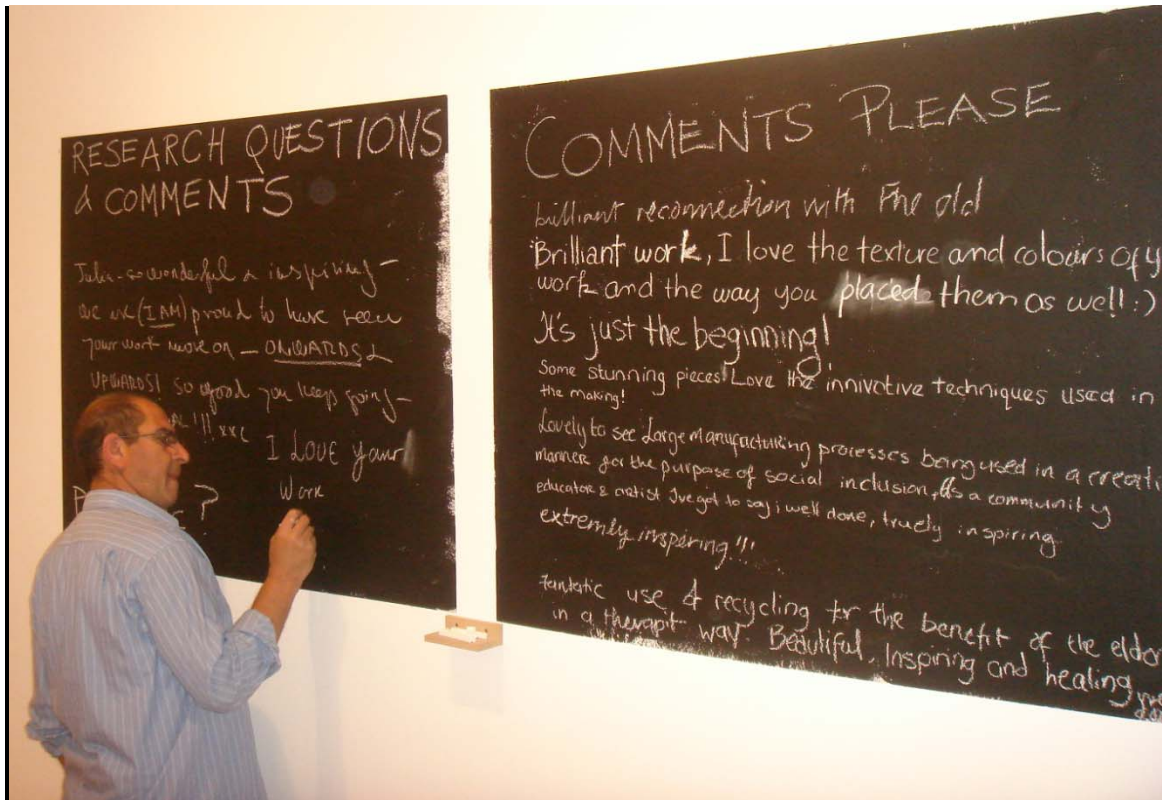 RESEARCH QUESTIONS
& COMMENTS
Julia - so wonderful & inspiring -
we are (I AM) proud to have seen
your work move on - ONWARDS &
UPWARDS! So good you keep going -
!!! xxc
I LOVE your
Work
?
COMMENTS PLEASE
brilliant reconnection with the old
Brilliant work, I love the texture and colours of
work and the way you placed them as well! :)
It's just the beginning!
Some stunning pieces! Love the innivative techniques used in
the making!
Lovely to see Large Manufacturing processes being used in a creati
manner for the purpose of social inclusion, As a community
educator & artist I've got to say, well done, truely inspiring
extremly inspering!!!
Fantatic use & recycling for the benefit of the elder
in a therapit way. Beautiful, Inspiring and healing